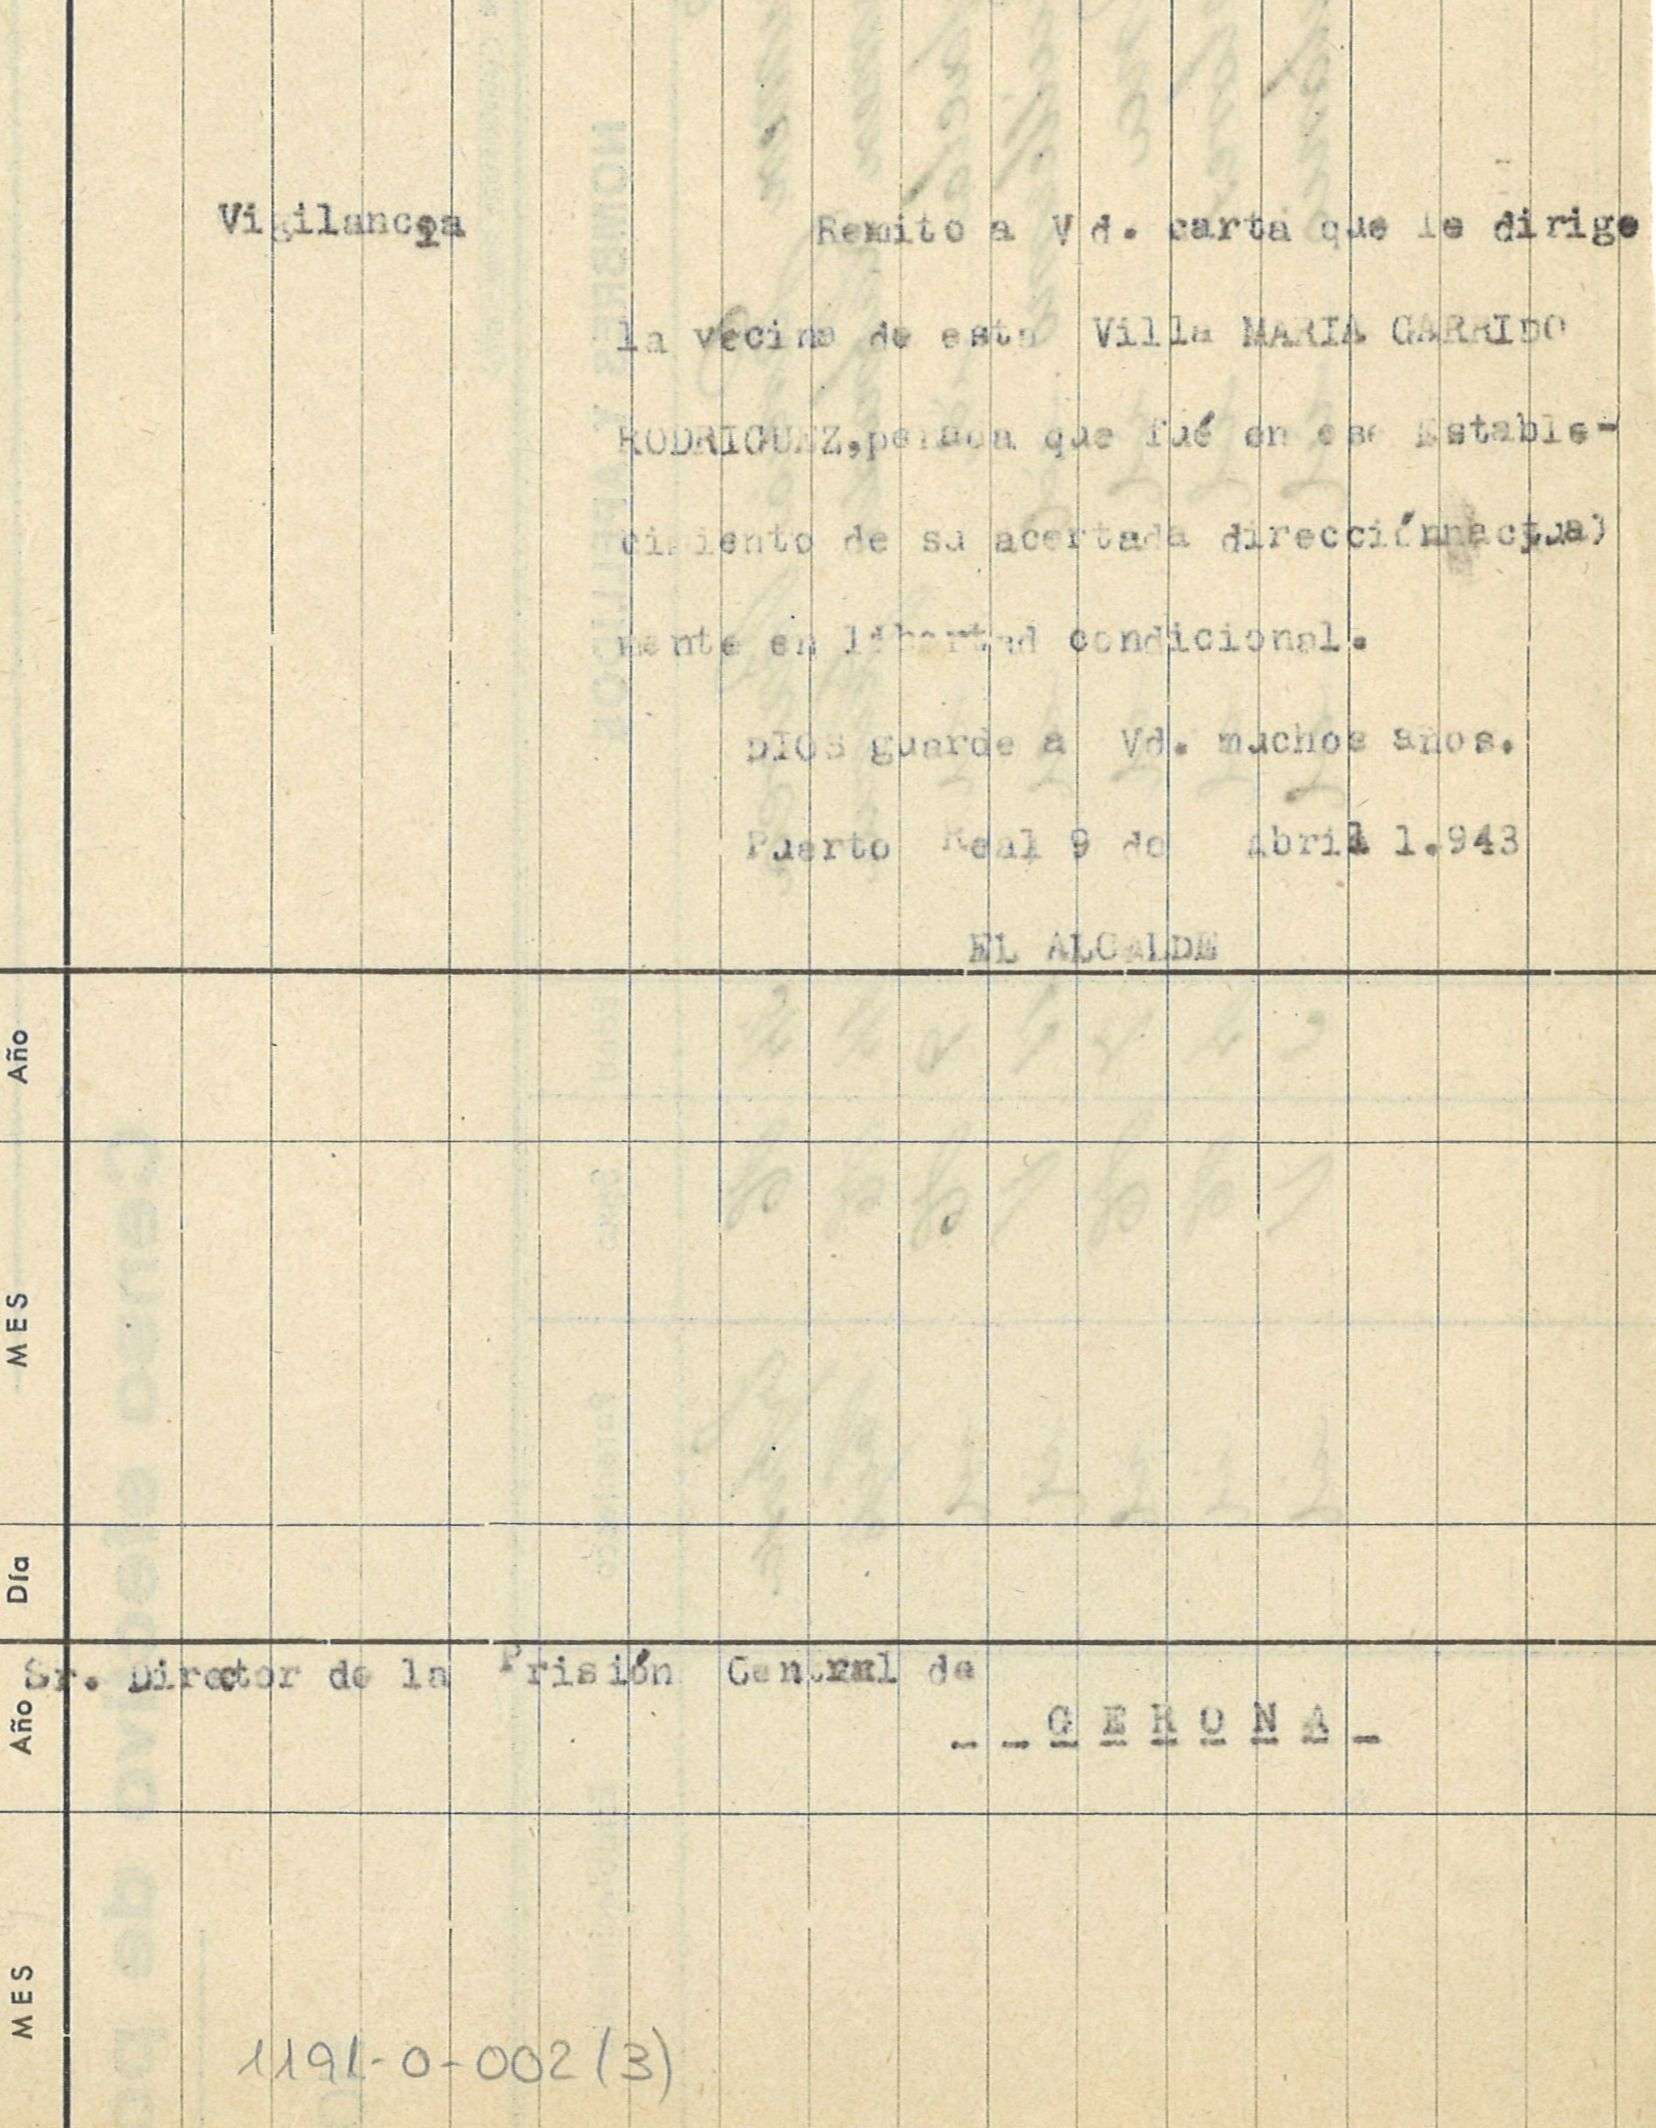 Vigilancia
Remito a Vd. carta que le dirige
la vecina de esta Villa MARIA GARRIDO
RODRIGUEZ,penada que fué en ese Estable-
cimiento de su acertada direcciónnactual
mente en libertad condicional.
DIOS guarde a Vd. muchos años.
Puerto Real 9 de Abril 1.943
EL ALCALDE
Año
MES
Día
Sr. Director de la Prisión Central de
Año
_ _G E R O N A_
MES
1191-0-002(3)